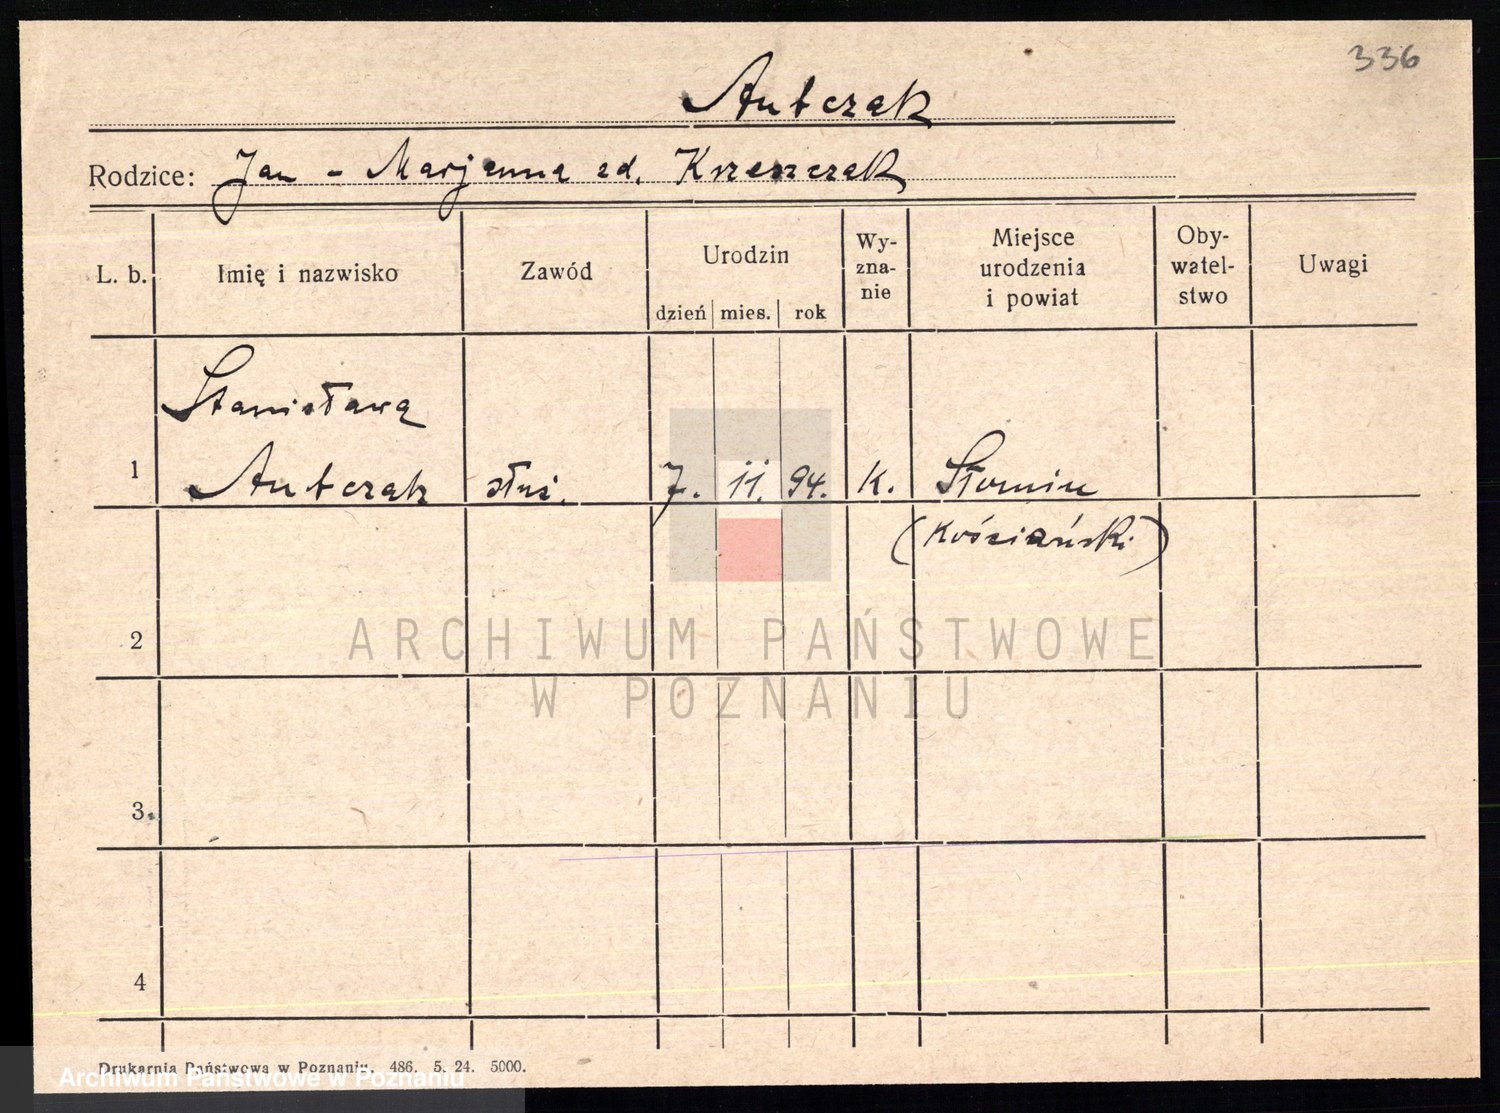 336
Antczak
Rodzice: Jan - Marjanna zd. Krzeszczak
L. b.
Imię i nazwisko
Zawód
Urodzin
dzień mies. rok
Wy-
zna-
nie
Miejsce
urodzenia
i powiat
Oby-
watel-
stwo
Uwagi
Stanisława
1 Antczak służ. 7. 11. 94. K. Słonin
(Kościański)
2
3.
4
ARCHIWUM PAŃSTWOWE
W POZNANIU
Drukarnia Państwowa w Poznaniu. 486. 5. 24. 5000.
Archiwum Państwowe w Poznaniu